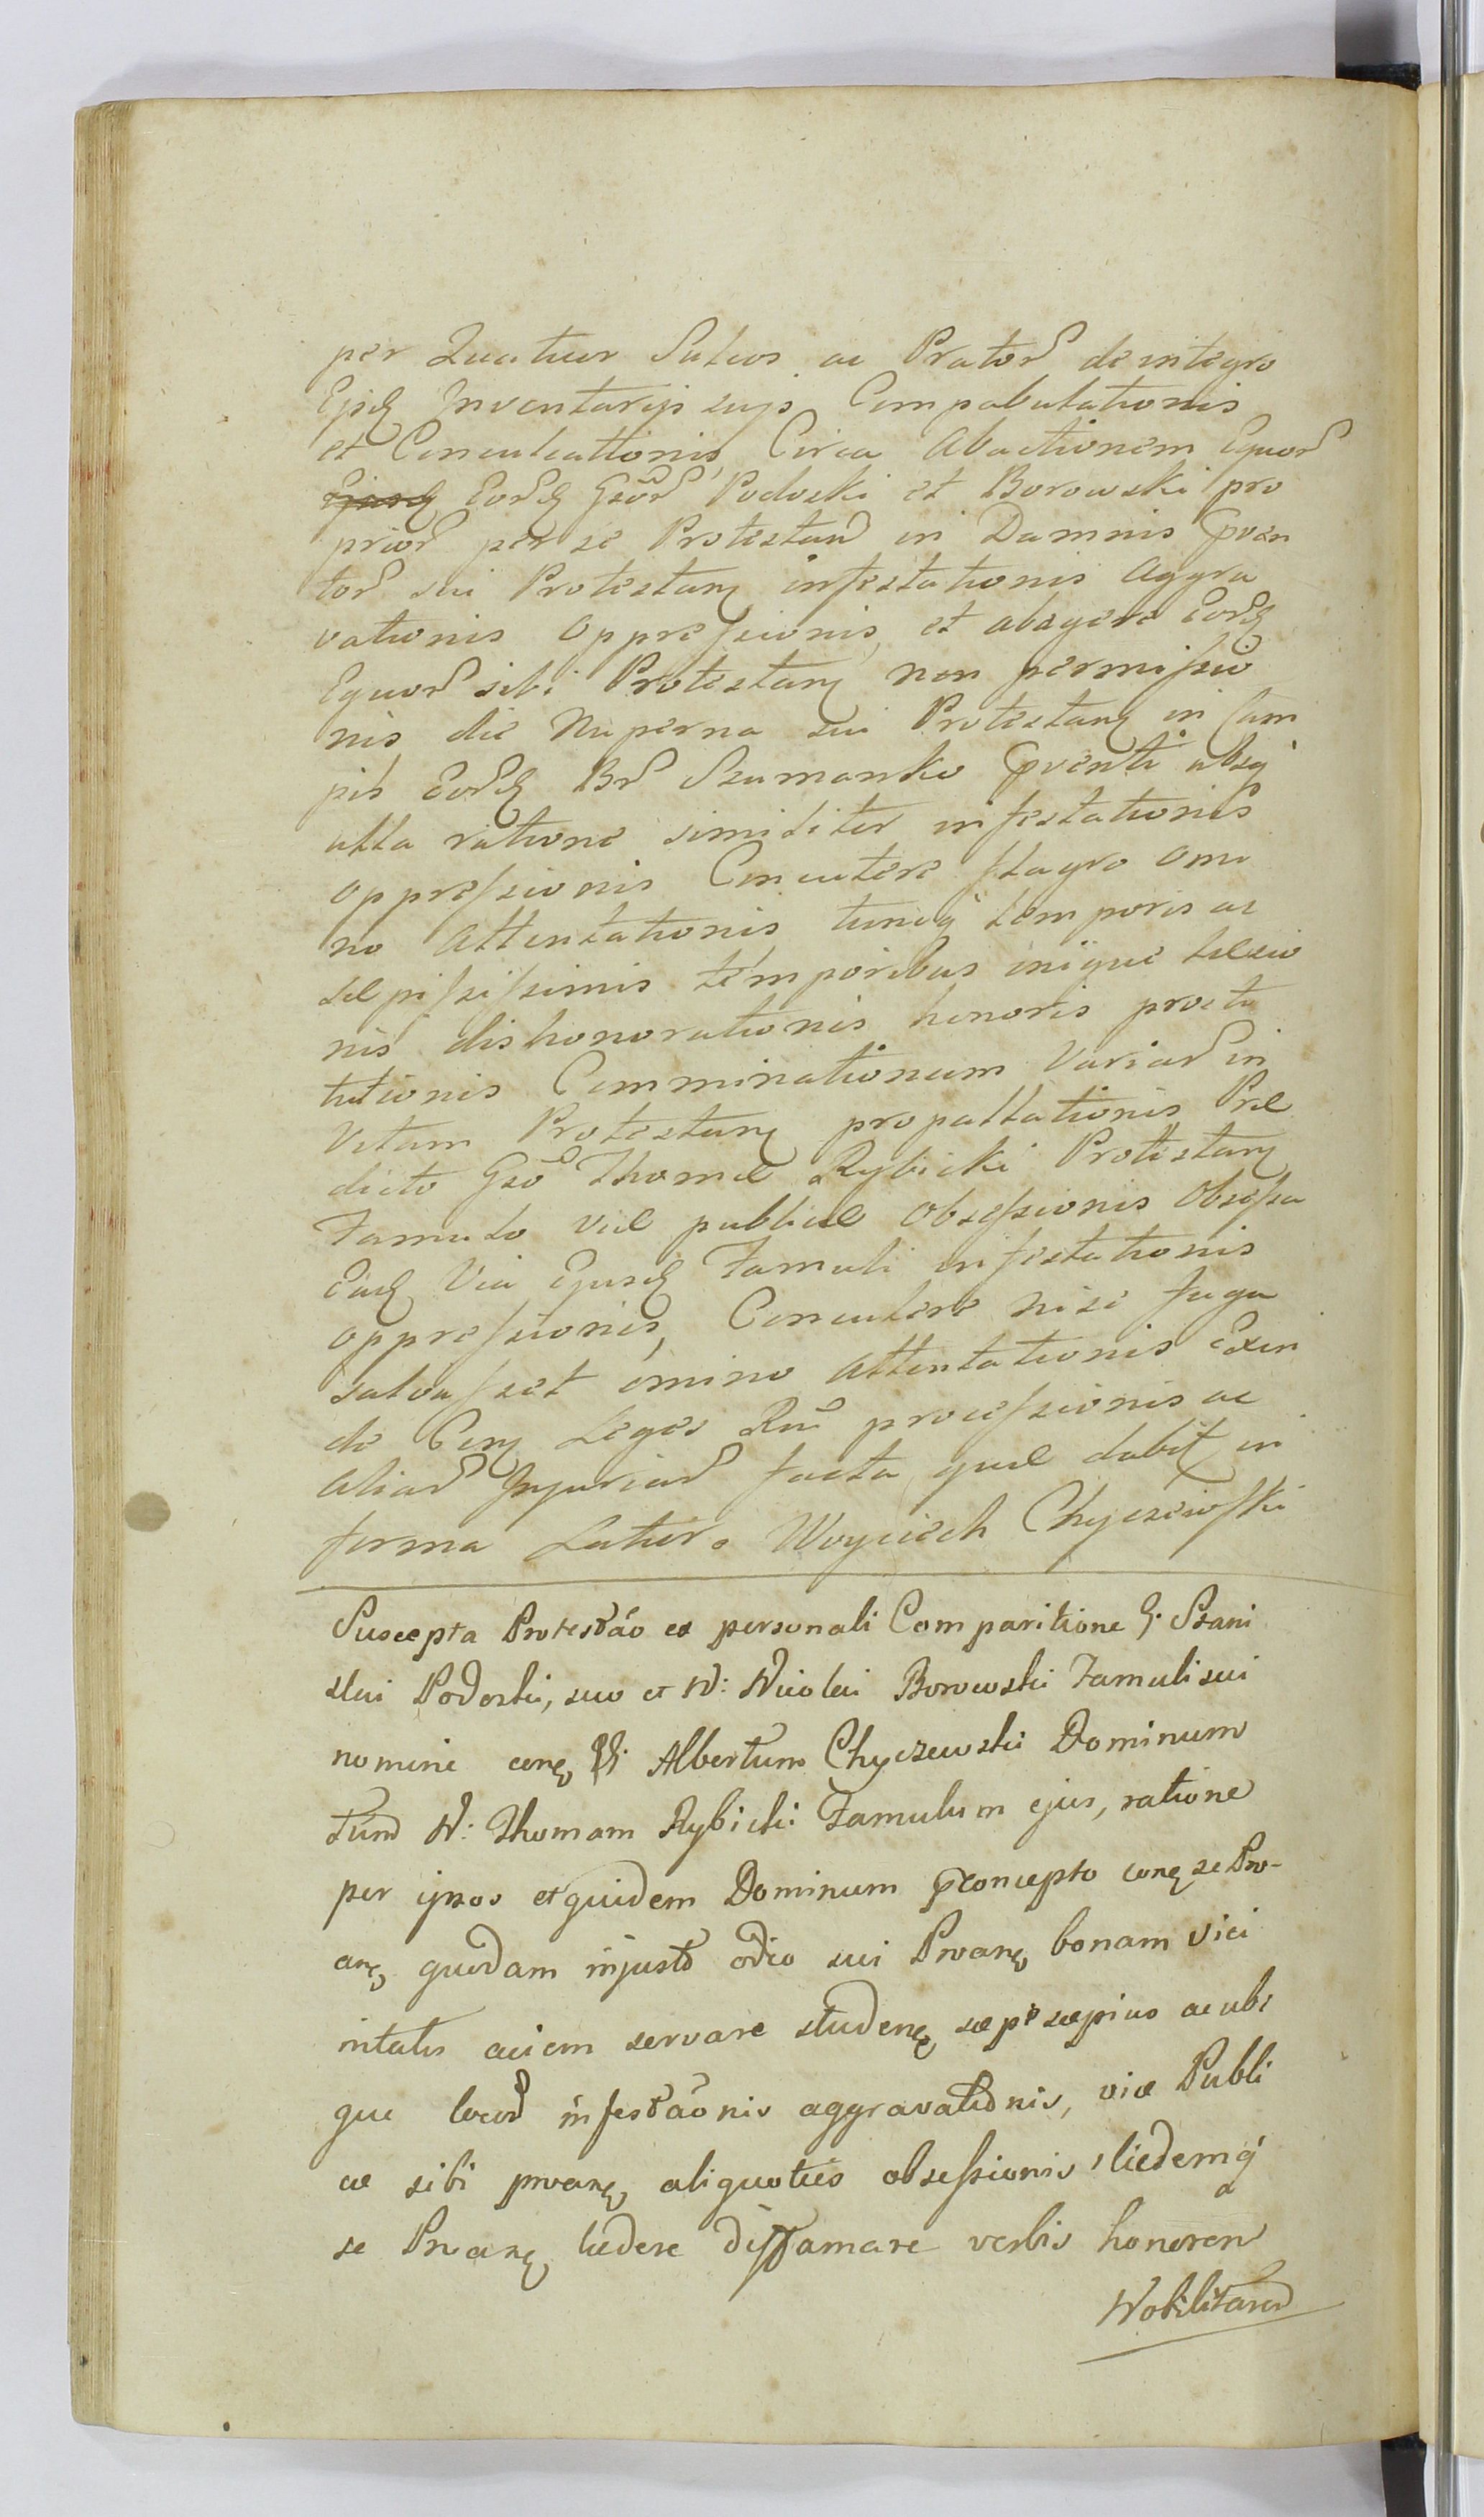 per Quatuor Satuos ac Prator de integro
Ejsd Inventarijs suys Compabulationis
et Conculcationis, Circa Abactionem Equor
Ejusd Eord Gsor Podoski et Borowski pro
prior per se Protestand in Damnis Conven
tor sui Protestan infestationis Aggra
vationis Oppressionis, et abagere Eord
Equor sibi Protestan non permissio
nis die Nuperna sui Protestan in Cam
pis Eord Br Szumanko Conventi absq
ulla ratione similiter infestationis
oppressionis Concutere flagro omi
no Attentationis tuncq temporis ac
saepissimis temporibus inique laesio
nis dishonorationis honoris prostu
tutionis Comminationum Variar in
Vitam Protestan propallationis Prae
dicto Gso Thomae Rybicki Protestan
Famulo viae publicae Obsessionis Obsessa
Ead Via Ejusd Famuli infestationis
oppressionis, Concutere nise fuga
salvasset omino Attentationis Exin
de Con Leges Rni processionis ac
Aliar Injuriar facta quae dabit in
forma Latior. Woyciech Chyczewski
Suscepta Protestao ex personali Comparitione G. Stani
slai Podoski, suo et N: Nicolai Borowski Famuli sui
nomine con G: Albertum Chyczewski Dominum
Tum N: Thomam Rybicki Famulum ejus, ratione
per ipsos et quidem Dominum Concepto con se Pro-
an, quodam injusto odio sui Proan bonam vici
nitatis aciem servare studen saepe saepius ac ubi
que locor infestaonis aggravationis, viae Publi
cae sibi proan aliquoties obsessionis, iisdemq
se Proan, laedere diffamare verbis honorem
Nobilitarem